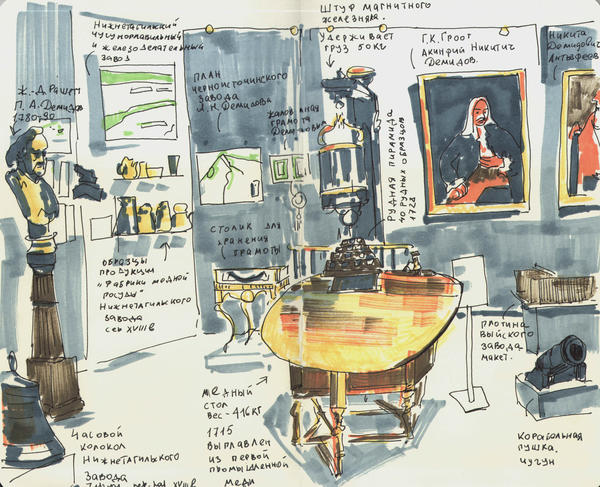 Нижнетагильский
чугуноплавильный
и железоделательный
завод
Штуф магнитного
железняка.
Удерживает
груз 50 кг
Г.К. Гроот
Акинфий Никитич
Демидов.
Никита
Демидович
Антуфьев
Ж.-Д. Рашет
П. А. Демидов
1780-90
План
Черноисточинского
завода
Н. Демидова
Жалованная
грамота
Демидовых
Рудная пирамида
40 рудных образцов
1728
Столик для
хранения
грамоты
Образцы
продукции
"Фабрики медной
посуды"
Нижнетагильского
завода
сер XVIII в
Плотина
Выйского
завода
макет.
Медный
стол
вес - 416 кг
1715
Выплавлен
из первой
промышленной
меди
Часовой
колокол
Нижнетагильского
завода
XVIII в
Корабельная
пушка.
Чугун